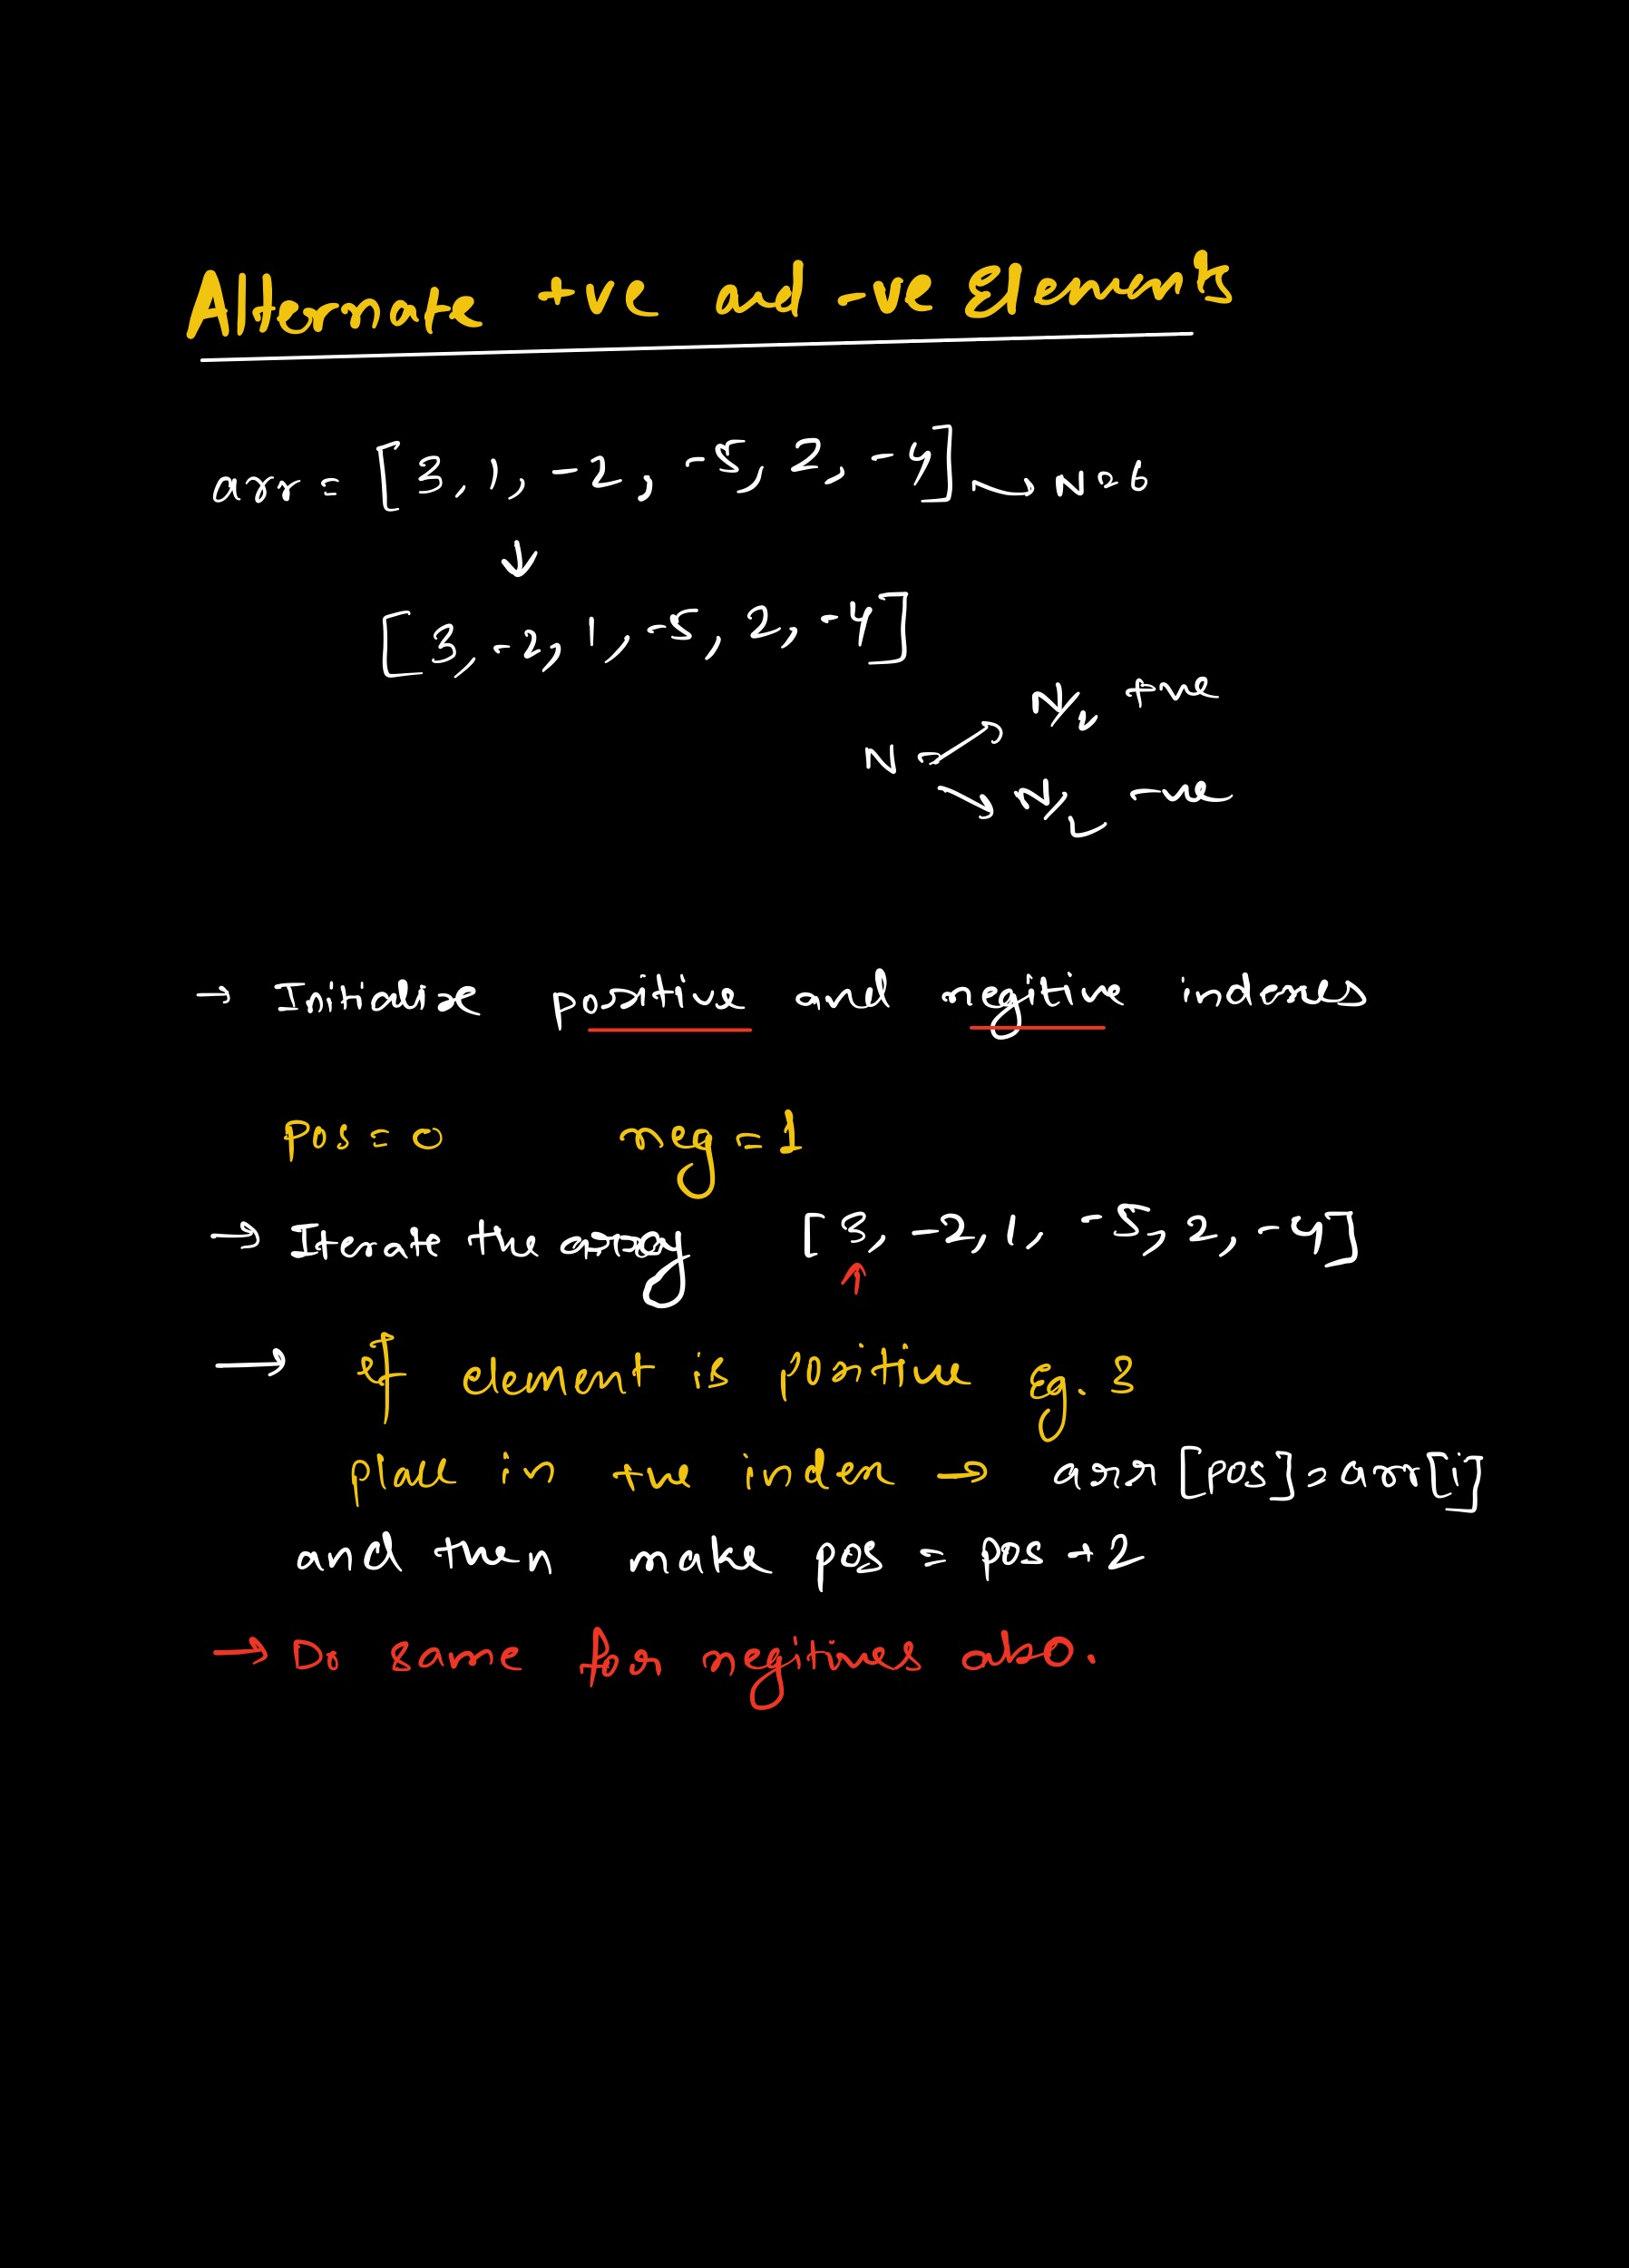 Alternate +ve and -ve Elements
arr = [3, 1, -2, -5, 2, -4] → N = 6
↓
[3, -2, 1, -5, 2, -4]
N/2 +ve
N =
N/2 -ve
→ Initialise positive and negitive indexes
pos = 0 neg = 1
→ Iterate the array [3, -2, 1, -5, 2, -4]
↑
→ If element is positive Eg. 3
place in +ve index → arr[pos] = arr[i]
and then make pos = pos + 2
→ Do same for negitives also.